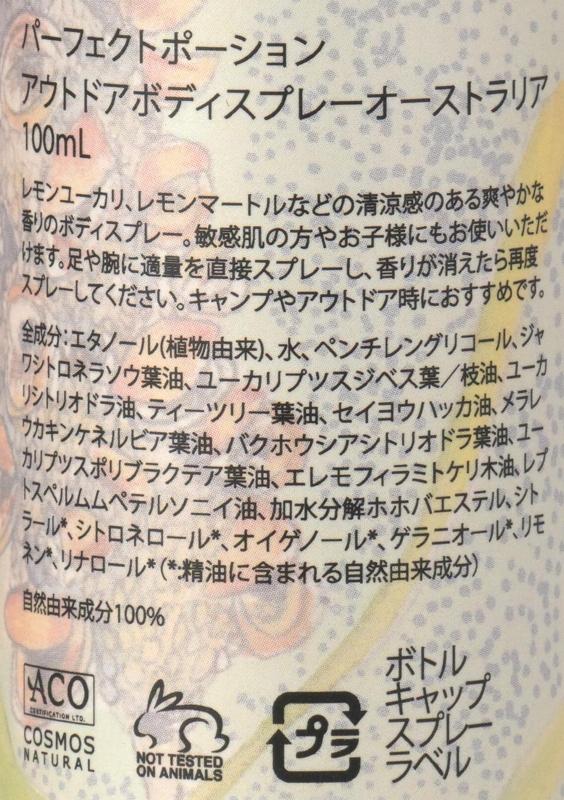 パーフェクトポーション
アウトドアボディスプレーオーストラリア
100mL
レモンユーカリ、レモンマートルなどの清涼感のある爽やかな
香りのボディスプレー。敏感肌の方やお子様にもお使いいただ
けます。足や腕に適量を直接スプレーし、香りが消えたら再度
スプレーしてください。キャンプやアウトドア時におすすめです。
全成分:エタノール(植物由来)、水、ペンチレングリコール、ジャ
ワシトロネラソウ葉油、ユーカリプツスジベス葉/枝油、ユーカ
リシトリオドラ油、ティーツリー葉油、セイヨウハッカ油、メラレ
ウカキンケネルビア葉油、バクホウシアシトリオドラ葉油、ユー
カリプツスポリブラクテア葉油、エレモフィラミトケリ木油、レプ
トスペルムムペテルソニイ油、加水分解ホホバエステル、シト
ラール*、シトロネロール*、オイゲノール*、ゲラニオール*、リモ
ネン*、リナロール* (*:精油に含まれる自然由来成分)
自然由来成分100%
ACO
CERTIFICATION LTD.
COSMOS
NATURAL
NOT TESTED
ON ANIMALS
プラ
ボトル
キャップ
スプレー
ラベル